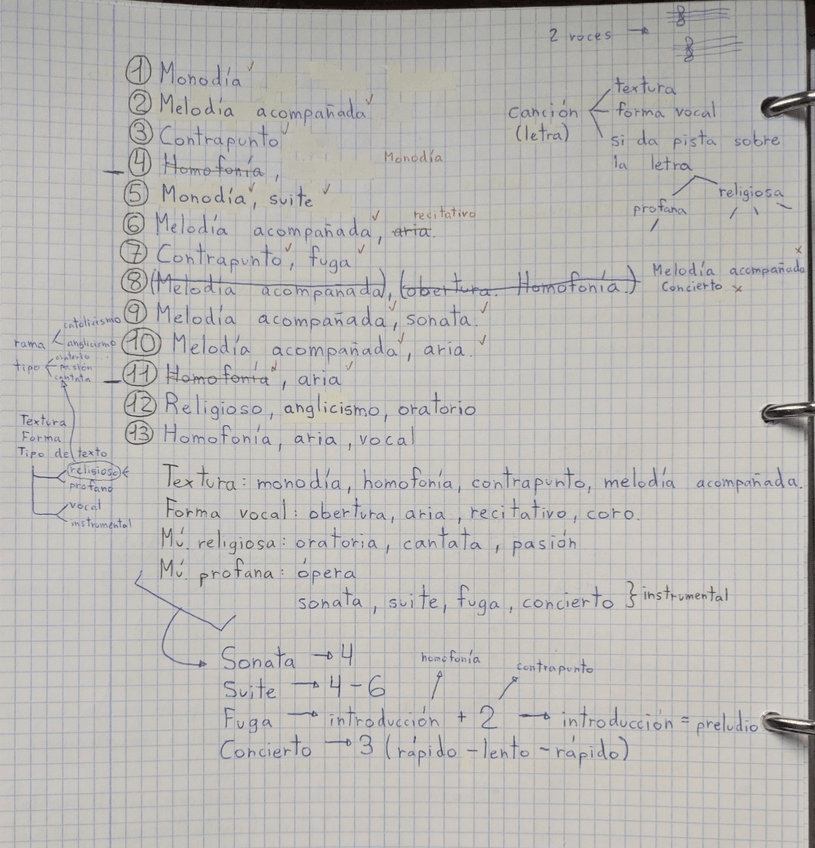 2 voces →
① Monodía ✓
② Melodía acompañada ✓
③ Contrapunto ✓
④ Homofonía, Monodía
⑤ Monodía ✓, suite ✓
⑥ Melodía acompañada ✓, aria. recitativo
⑦ Contrapunto ✓, fuga ✓
⑧ (Melodía acompañada), (obertura. Homofonía.) Melodía acompañada x
Concierto x
⑨ Melodía acompañada ✓, sonata. ✓
⑩ Melodía acompañada ✓, aria. ✓
⑪ Homofonía ✓, aria ✓
⑫ Religioso, anglicismo, oratorio
⑬ Homofonía, aria, vocal
Canción
(letra)
textura
forma vocal
si da pista sobre
la letra
profana
religiosa
rama
catolicismo
anglicismo
tipo
pasión
cantata
Textura
Forma
Tipo de texto
religioso
profano
vocal
instrumental
Textura: monodía, homofonía, contrapunto, melodía acompañada.
Forma vocal: obertura, aria, recitativo, coro.
Mú. religiosa: oratoria, cantata, pasión
Mú. profana: ópera
sonata, suite, fuga, concierto } instrumental
Sonata → 4
Suite → 4-6
homofonía
contrapunto
Fuga → introducción + 2 → introducción = preludio
Concierto → 3 (rápido - lento - rápido)